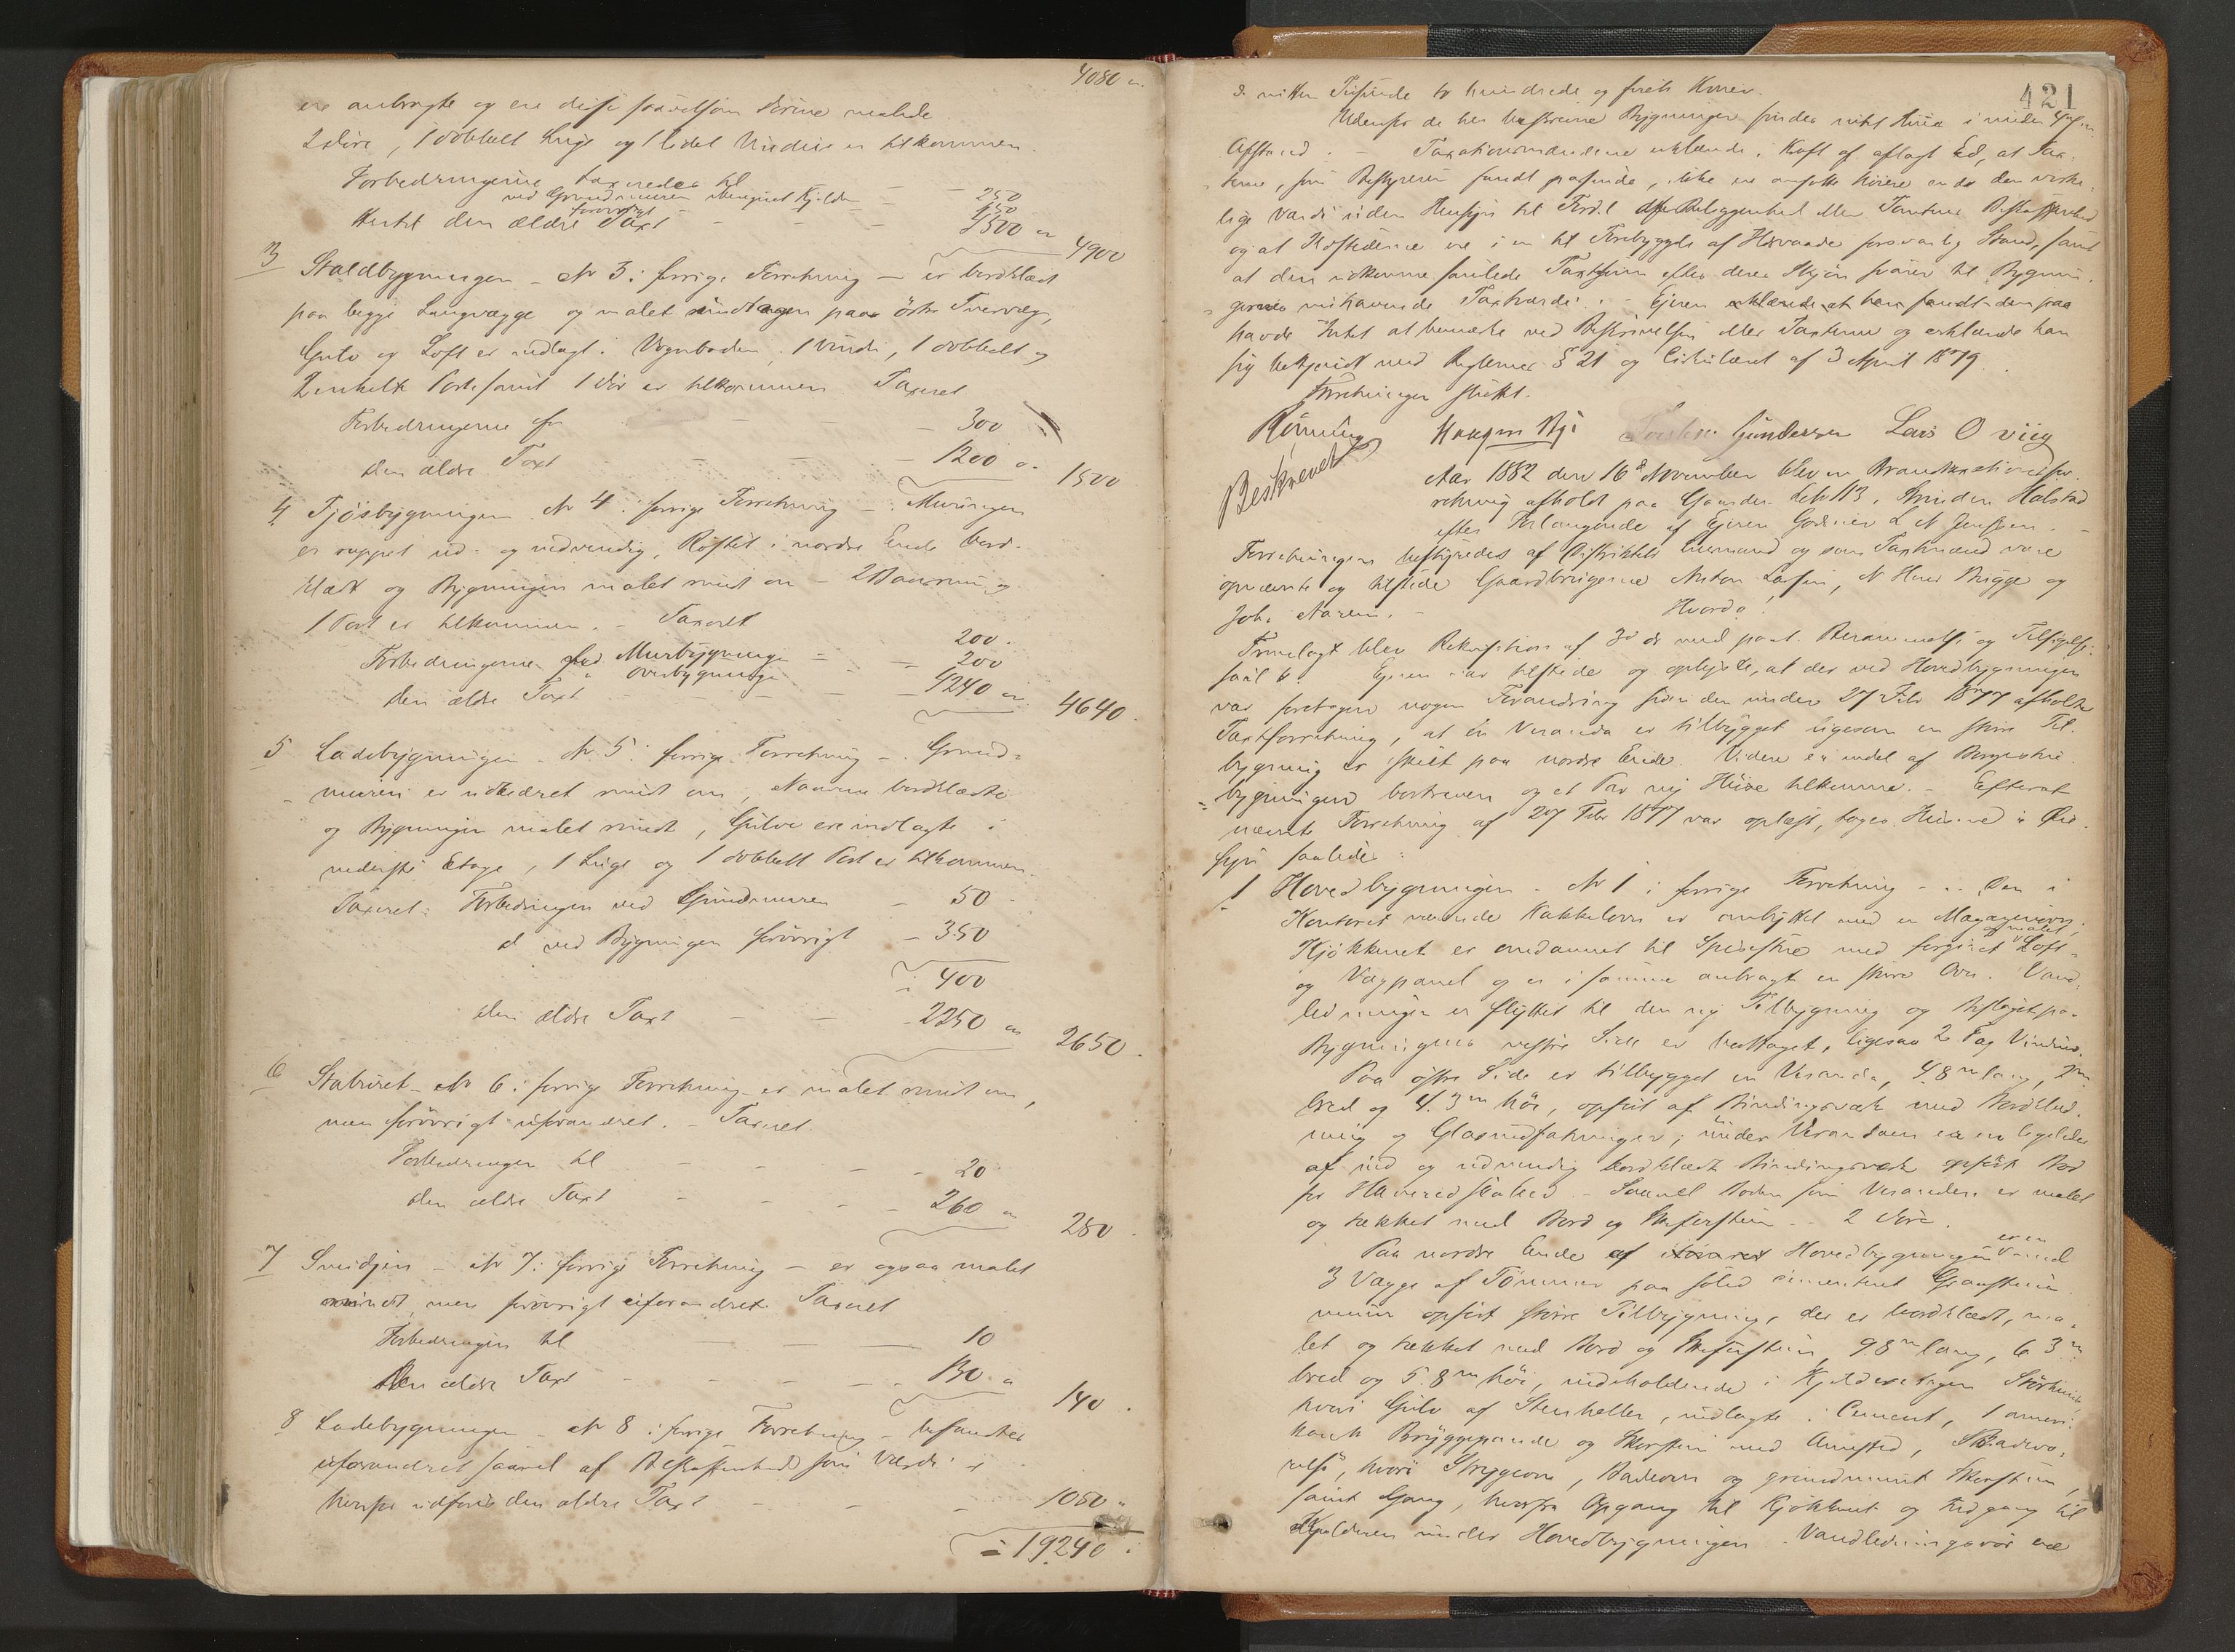 4080 "
ere anbragte og ere disse saavelsom Dørene malede.
2 døre, 1 dobbelt Luge og 1 lidet Vindue er tilkommen.
Forbedringerne taxeredes til — — 250
ved Grundmuren iberegnet Kjelder — 150
Hertil den ældre Taxt forøvrigt — — — 4500 " 4900
3 Staldbygningen - No 3 i forrige Forretning — er bordklædt
paa begge Langvægge og malet undtagen paa østre Tvervæg,
Gulv og Loft er indlagt i Vognboden, 1 Vindu, 1 dobbelt og
2 enkelte Porte samt 1 Dør er tilkommen Taxeret
Forbedringerne for — — — 300
den ældre Taxt — — — 1200 " 1500
4 Fjøsbygningen No 4 i forrige Forretning — Muringen
er rappet ud- og indvendig, Røstet i nordre Ende bord-
klædt og Bygningen malet rundt om — 2 Baasrum og
1 Port er tilkommen. — Taxeret
Forbedringerne ved Murbygninge — 200.
" Overbygninge — 200
den ældre Taxt — — — 4240 " 4640.
5 Ladebygningen - No 5 i forrige Forretning — Grund-
muren er udbedret rundt om, Novene bordklædte
og Bygningen malet rundt, Gulve ere indlagte i
nederste Etage, 1 Luge og 1 dobbelt Port er tilkommen.
Taxeret: Forbedringen ved Grundmuren — 50 -
d ved Bygningen forøvrigt — 350
= 400
den ældre Taxt — — — 2250 " 2650.
6 Staburet - No 6 i forrige Forretning er malet rundt om,
men forøvrigt uforandret. — Taxeret.
Forbedringen til — — — 20
den ældre Taxt — — — 260 " 280.
7 Smidjen — No 7 i forrige Forretning — er ogsaa malet
rundt, men forøvrigt uforandret. Taxeret
Forbedringen til — — 10
Den ældre Taxt — — — 130 " 140.
8 Ladebygningen — No 8 i forrige Forretning — befandtes
uforandret saavel af Beskaffenhed som Værdi og
herfor udføres den ældre Taxt — — — 1050 "
= 19240 :
421
d nitten Tusinde to hundrede og firti Kroner.
Udenfor de her beskrevne Bygninger findes intet Huus i mindre
Afstand. — Taxationsmændene erklærede i Kraft af aflagt Ed, at Tax-
terne, som Bestyreren fandt passende, ikke ere ansatte høiere end den virke-
lige Værdi uden Hensyn til Beliggenhed eller Tomtens Beskaffenhed
og at Ildstederne ere i en til Forebyggelse af Ildsvaade forsvarlig Stand, samt
at den udkomne samlede Taxtsum efter deres Skjøn svarer til Bygnin-
gernes nuhavende Taxtværdi. — Ejeren erklærede at han fandt den paa
havde Intet at bemærke ved Beskrivelsen eller Taxterne og erklærede han
sig bekjendt med Reglernes § 21 og Cirkulæret af 3 April 1879.
Forretningen sluttet.
Rønning Haagen Gundersen Lars O
Beskrevet
Aar 1882 den 16de November blev en Brandtaxationsfor-
retning afholdt paa Gaarden Halstad
efter Forlangende af Ejeren Jenssen. —
Forretningen bestyredes af Distriktets Lensmand og som Taxtmænd vare
opnævnte og tilstede Gaardbrugerne Anton Larsen, Brygge og
Joh. — Hvorda:
Fremlagt blev Rekvisition af 3d ds med paat. Berammelse og Tilsigelse.
Ejeren var tilstede og oplyste, at der ved Hovedbygningen
var foretagen nogen Forandring siden den under 27 Feb 1877 afholdte
Taxtforretning, at en Veranda er tilbygget ligesom en større Til-
bygning er skeet paa nordre Ende. Videre er endel af Borgestue-
bygningen bortreven og et Par nye Huse tilkomne. — Efterat
nævnte Forretning af 27 Febr 1877 var oplæst, toges Husene i Øie-
syn saaledes:
1 Hovedbygningen — No 1 i forrige Forretning — Den i
Kontoret værende Kakkelovn er ombyttet med en Magazinovn,
Kjøkkenet er omdannet til Spisestue med og malet Loft-
og Vægpanel og er i samme anbragt en større Ovn. Vand-
ledningen er flyttet til den ny Tilbygning og paa
Bygningens vestre Side er borttaget, ligesaa 2 Fag Vinduer.
Paa østre Side er tilbygget en Veranda, 4.8 m lang,
bred og 4.3 m høi, opført af Bindingsværk med Bordklæd-
ning og Glasindfatninger; under Verandaen er en ligeledes
af ind og udvendig bordklædt Bindingsværk opført Bod
for Haveredskaber. — Saavel Boden som Verandaen er malet
og tækket med Bord og Skifersten — 2 Døre.
Paa nordre Ende af Hovedbygningen er en med
3 Vægge af Tømmer paa solid cementeret Graastens-
muur opført større Tilbygning, der er bordklædt, ma-
let og tækket med Bord og Skifersten, 9.8 m lang, 6.3 m
bred og 5.8 m høi, indeholdende i Kjelderetagen
hvori Gulv af Stenheller, indlagte i Cement, 1 ameri-
kansk Bryggepande og Skorsten med Arnested,
relse, hvori Strygeovn, Badeovn og grundmuret Skorsten,
samt Gang, hvorfra Opgang til Kjøkkenet og Indgang til
Kjelderen under Hovedbygningen. Vandledningsrør ere